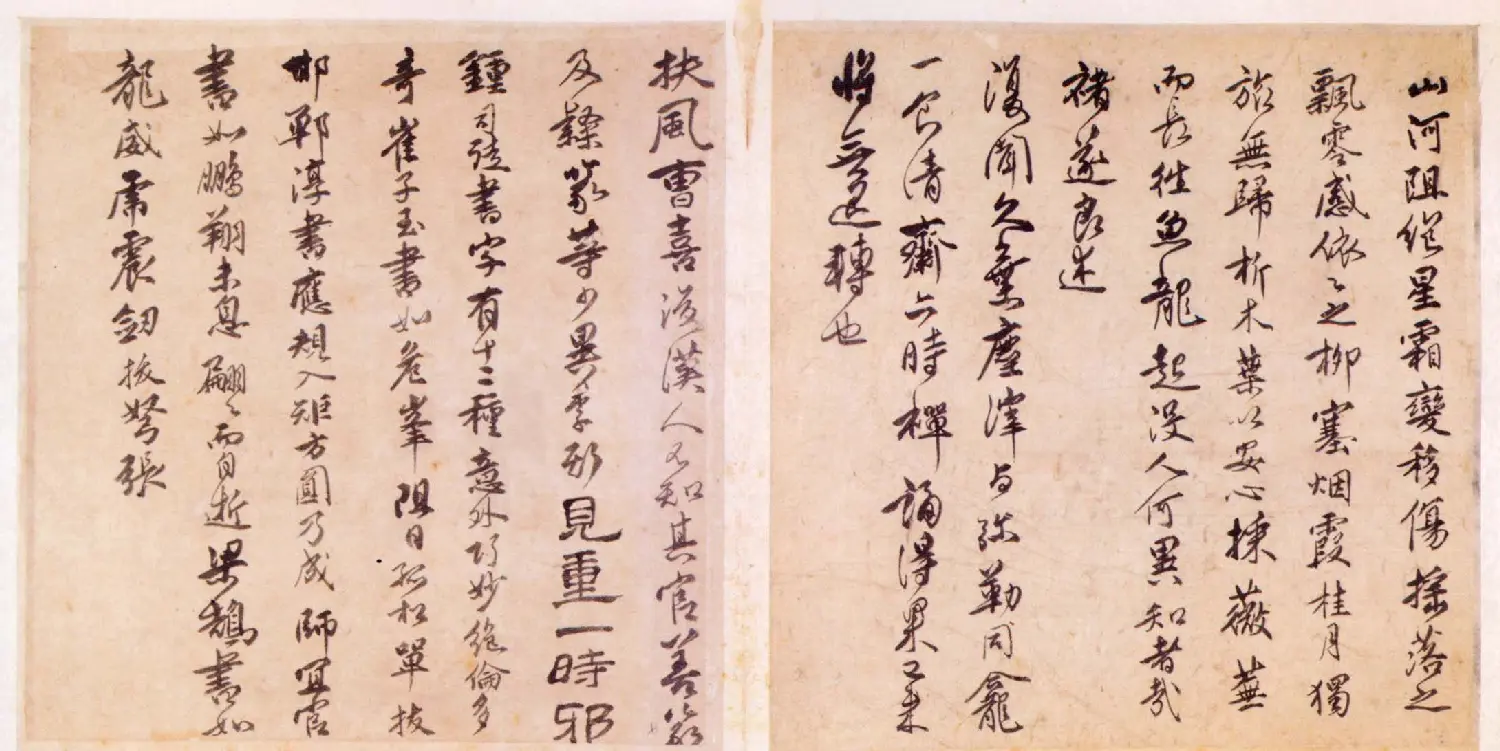 山河阻絕星霜變移傷搖落之
飄零感依〻之柳塞烟霞桂月獨
旅無歸折木葉以安心採薇蕪
而長性魚龍起沒人何異知者哉
褚遂良述
復聞久棄塵滓与弥勒同龕
一食清齋六時禪誦得果已来
將无退轉也
扶風曹喜後漢人不知其官善篆
及隸篆等少異李斯見重一時邪
鍾司徒書字有十二種意外巧妙絕倫多
奇崔子玉書如危峯阻日孤松單枝
邯鄲淳書應規入矩方圓乃成師宜官
書如鵬翔未息翩〻而自逝梁鵠書如
龍威虎震劒拔弩張